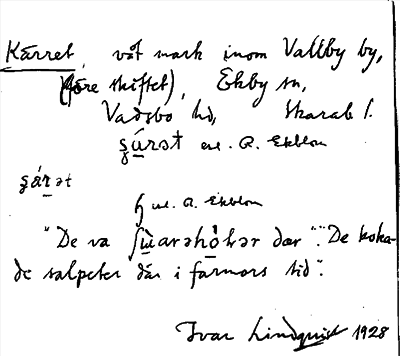 Kärret, våt mark inom Vallby by,
(före skiftet), Ekby sn,
Vadsbo hd, Skarab. l.
enl. R. Ekblom
enl. R. Ekblom
"De va där". "De koka-
de salpeter där i farmors tid".
Ivar Lindquist 1928